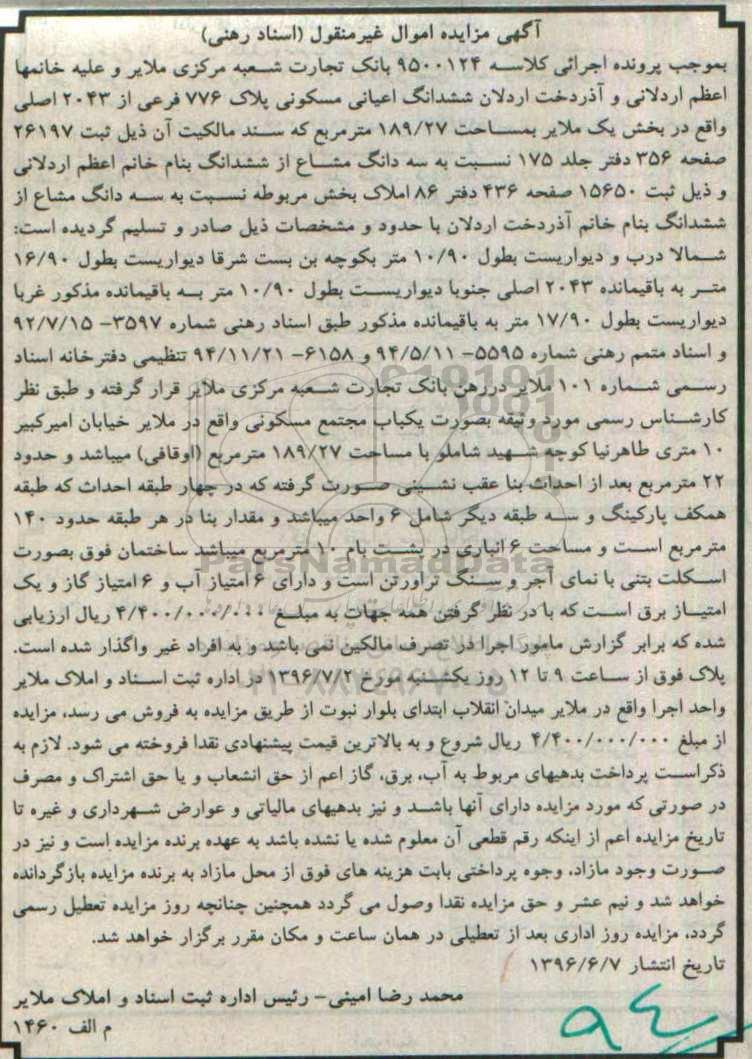 آگهی مزایده اموال غیرمنقول (اسناد رهنی)
بموجب پرونده اجرائی کلاسه ۹۵۰۰۱۲۴ بانک تجارت شعبه مرکزی ملایر و علیه خانمها
اعظم اردلانی و آذردخت اردلان ششدانگ اعیانی مسکونی پلاک ۷۷۶ فرعی از ۲۰۴۳ اصلی
واقع در بخش یک ملایر بمساحت ۱۸۹/۲۷ مترمربع که سند مالکیت آن ذیل ثبت ۲۶۱۹۷
صفحه ۳۵۶ دفتر جلد ۱۷۵ نسبت به سه دانگ مشاع از ششدانگ بنام خانم اعظم اردلانی
و ذیل ثبت ۱۵۶۵۰ صفحه ۴۳۶ دفتر ۸۶ املاک بخش مربوطه نسبت به سه دانگ مشاع از
ششدانگ بنام خانم آذردخت اردلان با حدود و مشخصات ذیل صادر و تسلیم گردیده است:
شمالا درب و دیواریست بطول ۱۰/۹۰ متر بکوچه بن بست شرقا دیواریست بطول ۱۶/۹۰
متر به باقیمانده ۲۰۴۳ اصلی جنوبا دیواریست بطول ۱۰/۹۰ متر به باقیمانده مذکور غربا
دیواریست بطول ۱۷/۹۰ متر به باقیمانده مذکور طبق اسناد رهنی شماره ۳۵۹۷- ۹۲/۷/۱۵
و اسناد متمم رهنی شماره ۵۵۹۵- ۹۴/۵/۱۱ و ۶۱۵۸- ۹۴/۱۱/۲۱ تنظیمی دفترخانه اسناد
رسمی شماره ۱۰۱ ملایر دررهن بانک تجارت شعبه مرکزی ملایر قرار گرفته و طبق نظر
کارشناس رسمی مورد وثیقه بصورت یکباب مجتمع مسکونی واقع در ملایر خیابان امیرکبیر
۱۰ متری طاهرنیا کوچه شهید شاملو با مساحت ۱۸۹/۲۷ مترمربع (اوقافی) میباشد و حدود
۲۲ مترمربع بعد از احداث بنا عقب نشینی صورت گرفته که در چهار طبقه احداث که طبقه
همکف پارکینگ و سه طبقه دیگر شامل ۶ واحد میباشد و مقدار بنا در هر طبقه حدود ۱۴۰
مترمربع است و مساحت ۶ انباری در پشت بام ۱۰ مترمربع میباشد ساختمان فوق بصورت
اسکلت بتنی با نمای آجر و سنگ تراورتن است و دارای ۶ امتیاز آب و ۶ امتیاز گاز و یک
امتیاز برق است که با در نظر گرفتن همه جهات به مبلغ ۴/۴۰۰/۰۰۰/۰۰۰ ریال ارزیابی
شده که برابر گزارش مامور اجرا در تصرف مالکین نمی باشد و به افراد غیر واگذار شده است.
پلاک فوق از ساعت ۹ تا ۱۲ روز یکشنبه مورخ ۱۳۹۶/۷/۲ در اداره ثبت اسناد و املاک ملایر
واحد اجرا واقع در ملایر میدان انقلاب ابتدای بلوار نبوت از طریق مزایده به فروش می رسد، مزایده
از مبلغ ۴/۴۰۰/۰۰۰/۰۰۰ ریال شروع و به بالاترین قیمت پیشنهادی نقدا فروخته می شود. لازم به
ذکراست پرداخت بدهیهای مربوط به آب، برق، گاز اعم از حق انشعاب و یا حق اشتراک و مصرف
در صورتی که مورد مزایده دارای آنها باشد و نیز بدهیهای مالیاتی و عوارض شهرداری و غیره تا
تاریخ مزایده اعم از اینکه رقم قطعی آن معلوم شده یا نشده باشد به عهده برنده مزایده است و نیز در
صورت وجود مازاد، وجوه پرداختی بابت هزینه های فوق از محل مازاد به برنده مزایده بازگردانده
خواهد شد و نیم عشر و حق مزایده نقدا وصول می گردد همچنین چنانچه روز مزایده تعطیل رسمی
گردد، مزایده روز اداری بعد از تعطیلی در همان ساعت و مکان مقرر برگزار خواهد شد.
تاریخ انتشار ۱۳۹۶/۶/۷
محمد رضا امینی- رئیس اداره ثبت اسناد و املاک ملایر
م الف ۱۴۶۰
ParsNamadData